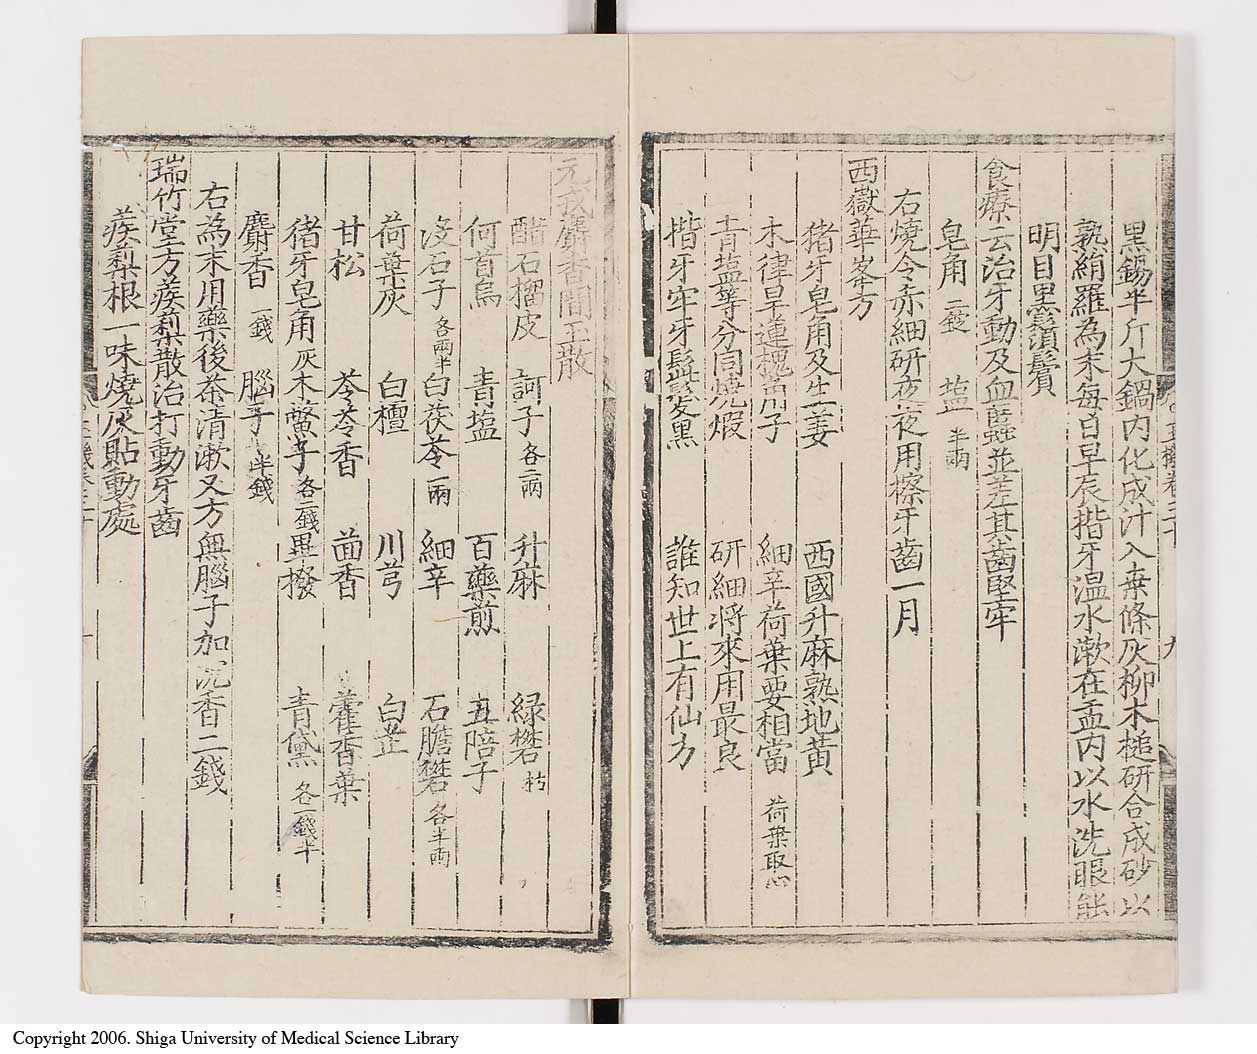 黑錫半斤大鍋內化成汁入桒條灰柳木槌研合成砂以
熟絹羅為末每日早辰揩牙溫水漱在盂內以水洗眼能
明目黑鬚鬢
食療云治牙動及血𧏾並差其齒堅牢
皂角二鋌 塩半兩
右燒令赤細研夜夜用擦牙齒一月
西嶽華峯方
猪牙皂角及生姜 西國升麻熟地黃
木律旱蓮槐角子 細辛荷葉要相當荷葉取心
青塩等分同燒煆 研細將來用最良
揩牙牢牙髭髮黑 誰知世上有仙方
元戎麝香間玉散
醋石榴皮 訶子各二兩 升麻 綠礬枯
何首烏 青塩 百藥煎 五陪子
沒石子各兩半 白茯苓一兩 細辛 石膽礬各半兩
荷葉灰 白檀 川芎 白芷
甘松 苓苓香 茴香 藿香葉
猪牙皂角灰 木鱉子各二錢 蓽撥 青黛各一錢半
麝香一錢 腦子半錢
右為末用藥後茶清漱又方無腦子加沉香二錢
瑞竹堂方蒺䔧散治打動牙齒
蒺䔧根一味燒灰貼動處
Copyright 2006. Shiga University of Medical Science Library